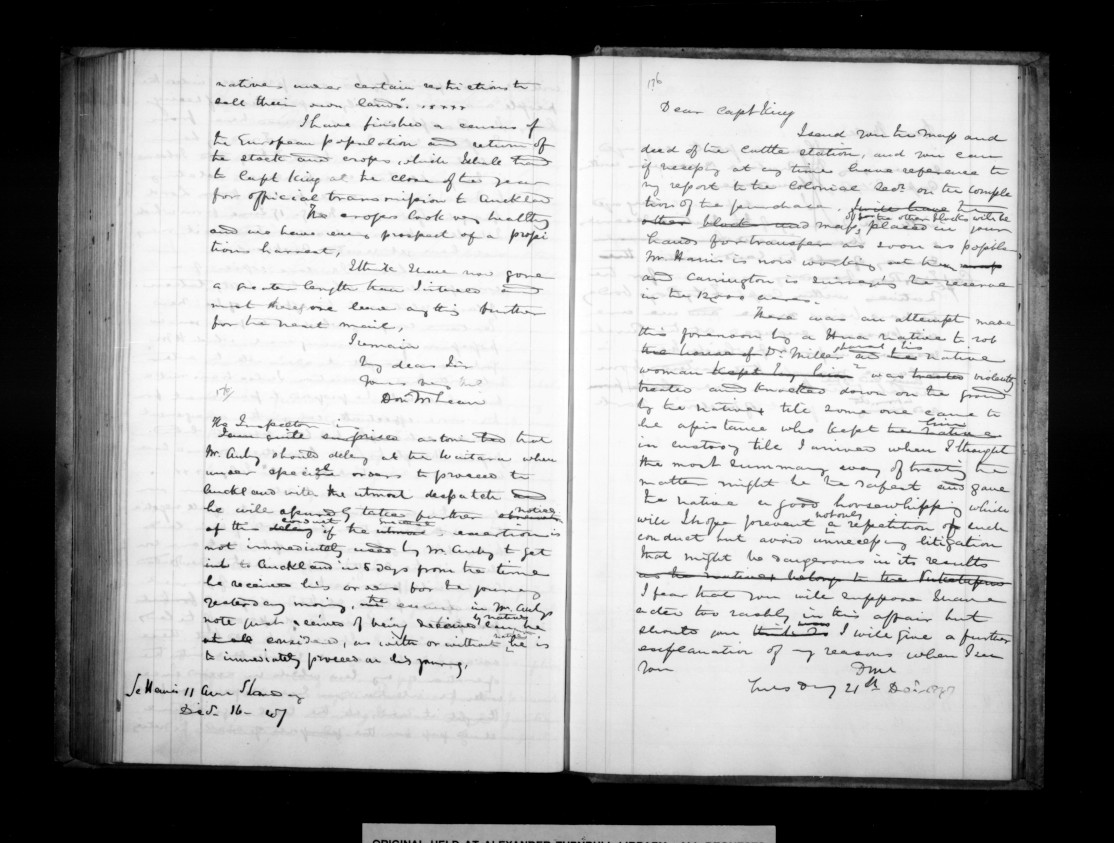 natives under certain restrictions to
sell their own lands". xxxxx
I have finished a census of
the European population and return of
the stock and crops, which I shall hand
to Capt King at the close of the year
for official transmission to Auckland
The crops look very healthy
and we have every prospect of a propi
tious harvest,
I think I have now gone
a greater length than I intended and
must therefore leave anything further
for the next mail,
I remain
My dear Sir
Yours very
Don. McLean
The Inspector in
I am quite surprised astonished that
Mr. Auby should delay at the Waitara when
under special orders to proceed to
Auckland with the utmost despatch and
notice
he will assuredly take further
conduct
of the delay if the utmost exertion is
not immediately used by Mr. Auby to get
into Auckland in 5 days from the time
he receives his orders for the journey
yesterday morning, the excuse in Mr. Auby's
by natives
note just received of being detained cannot be
at all considered, as with or without he is
to immediately proceed on his journey,
Dec. 16 - 47
176
Dear Capt King
I send you the map and
deed of the cattle station, and you can
if necessary at any time have reference to
my report to the Colonial Secy. on the comple
tion of the purchase. I will have the
of the other blocks will be
other block and map, placed in your
hands for transfer as soon as possible,
Mr Harris is now working at them
and Carrington is surveying the reserve
in the 12000 acres.
There was an attempt made
this forenoon by a Hua native to rob
the house of Dr. Miller and his native
woman kept by him was treated violently
treated and knocked down on the ground
by the natives till some one came to
him
her assistance who kept the native
in custody till I arrived when I thought
the most summary way of treating the
matter might be the safest and gave
the native a good horsewhipping which
not only
will I hope prevent a repetition of such
conduct but avoid unnecessary litigation
that might be dangerous in its results
as the natives belongs to the Puketapus
I fear that you will suppose I have
acted too rashly in this affair but
should you think so I will give a further
explanation of my reasons when I see
you
DMcL
Tuesday 21st Decr 1847
ORIGINAL HELD AT ALEXANDER TURNBULL LIBRARY